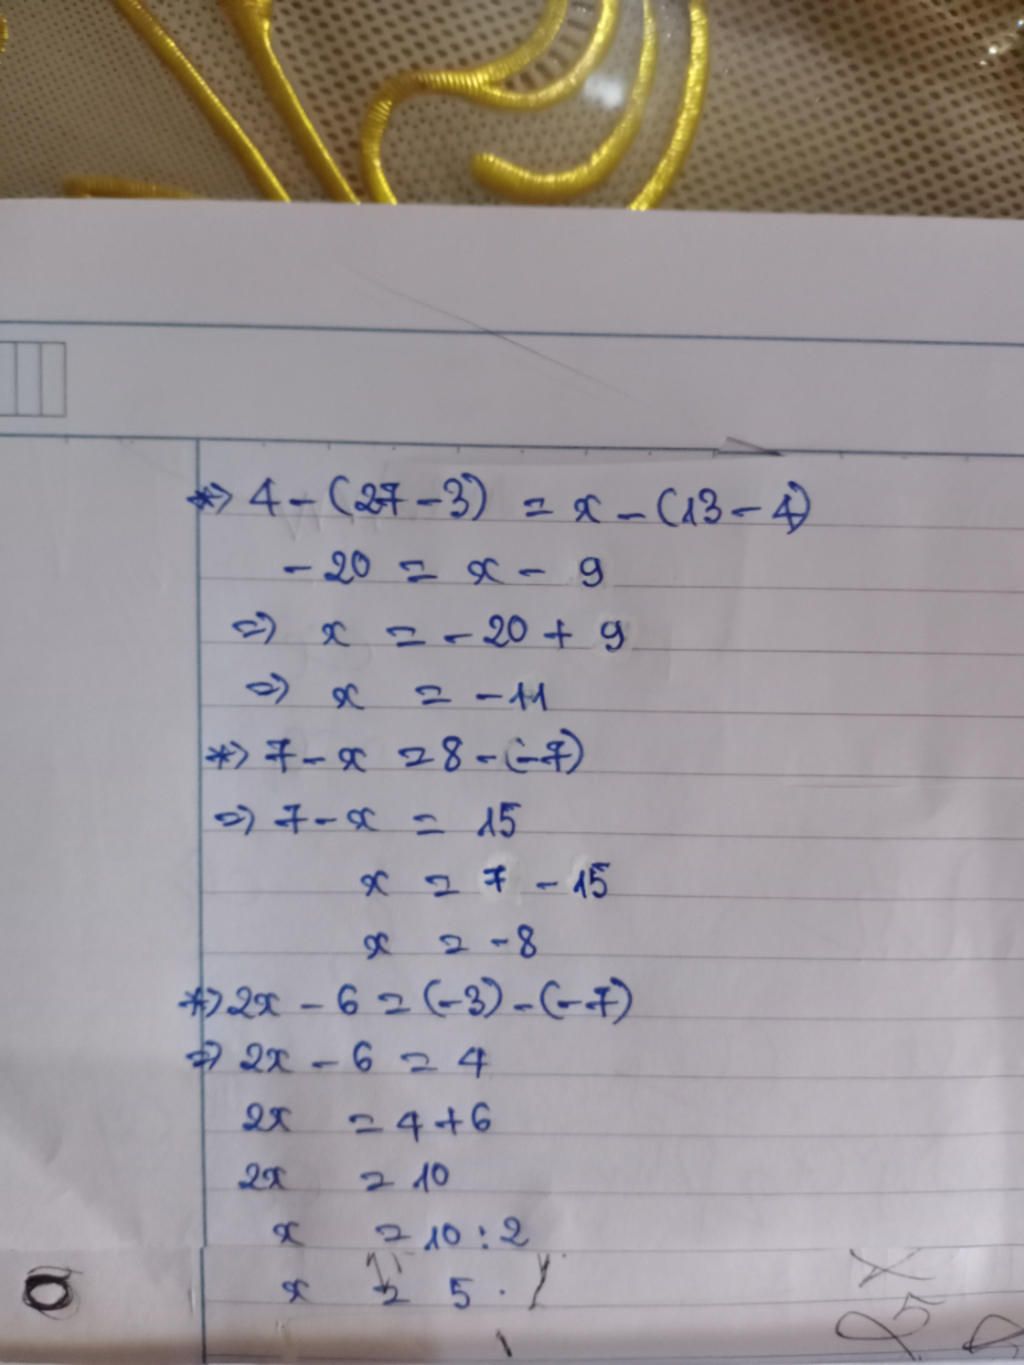 *) 4 - (27 - 3) = x - (13 - 4)
- 20 = x - 9
=) x = - 20 + 9
=) x = - 11
*) 7 - x = 8 - (-7)
=) 7 - x = 15
x = 7 - 15
x = - 8
*) 2x - 6 = (-3) - (-7)
=) 2x - 6 = 4
2x = 4 + 6
2x = 10
x = 10 : 2
x = 5 .